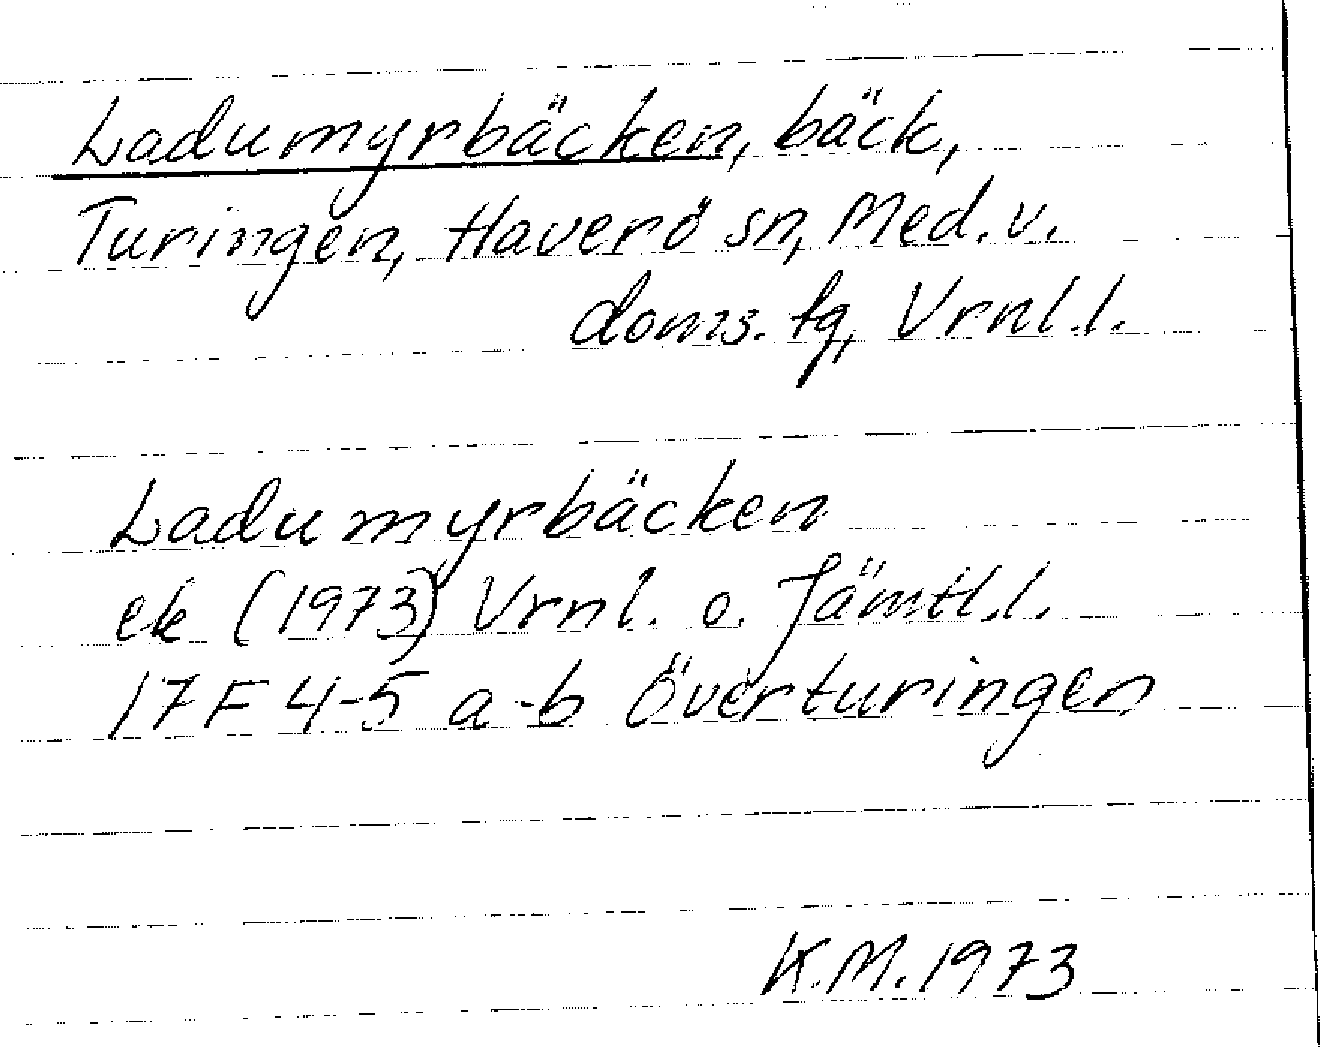 Ladumyrbäcken, bäck,
Turingen, Haverö sn, Med. v.
doms. tg, Vrnl. l.
Ladumyrbäcken
ek (1973) Vrnl. o. Jämtl. l.
17F 4-5 a-b Överturingen
K.M. 1973